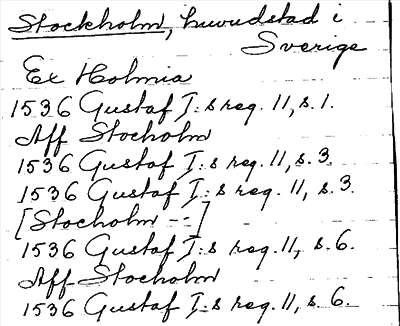 Stockholm, huvudstad i
Sverige
Ex Holmia
1536 Gustaf I:s reg. 11, s. 1.
Aff Stocholm
1536 Gustaf I:s reg. 11, s. 3.
1536 Gustaf I:s reg. 11, s. 3.
[Stocholm --]
1536 Gustaf I:s reg. 11, s. 6.
Aff Stocholm
1536 Gustaf I:s reg. 11, s. 6.